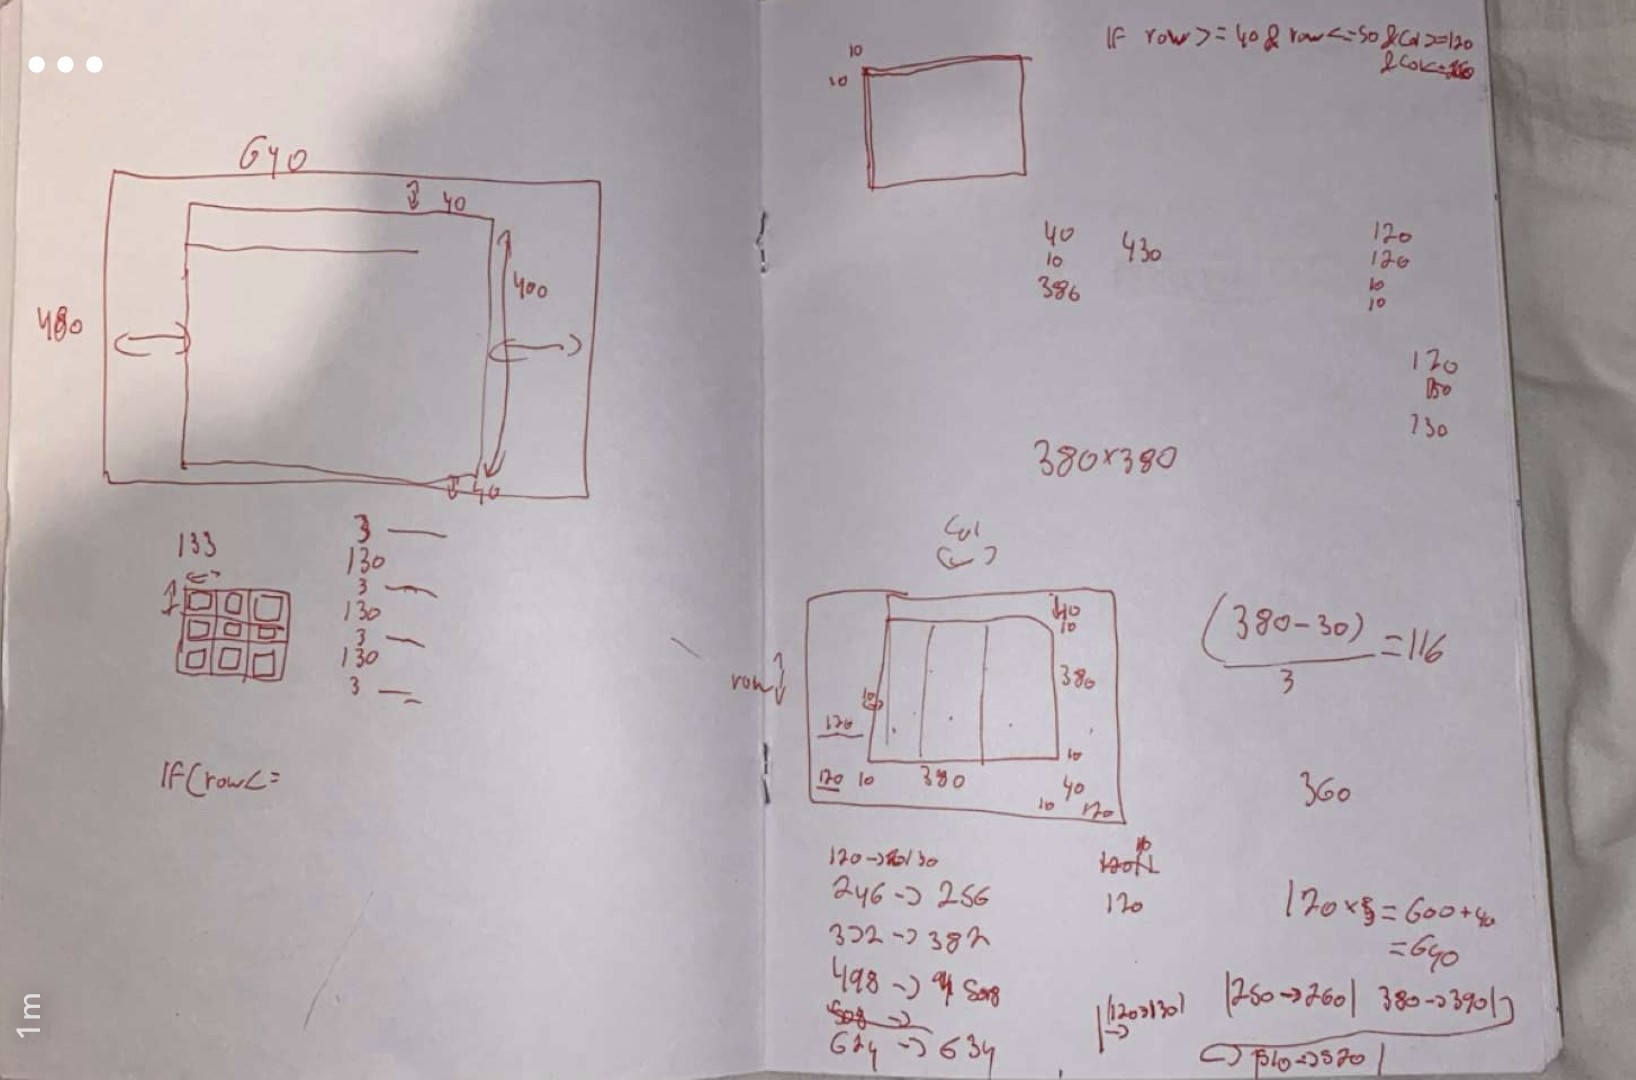 640
40
400
480
40
133
3
130
3
130
3
130
3
If(row<=
10
10
If row>=40 & row<=50 & col>=120
40
10
386
430
120
120
10
10
120
130
380x380
Col
row
40
10
380
10
120
10
120
10
380
40
10
120
(380-30)
3
=116
360
246 -> 256
372 -> 382
498 -> 508
624 -> 634
10
120
120x5=600+40
=640
|(120->130)
->
|250->260| 380->390|
510->520|
1m